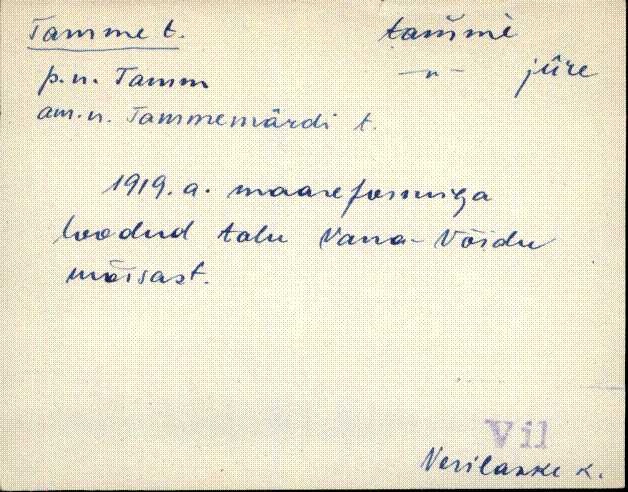 Tamme t. tam̆mè
p.n. Tamm —"— jûre
am.n. Tammemärdi t.
1919. a. maareformiga
loodud talu Vana-Võidu
mõisast.
Vil
Verilaske k.